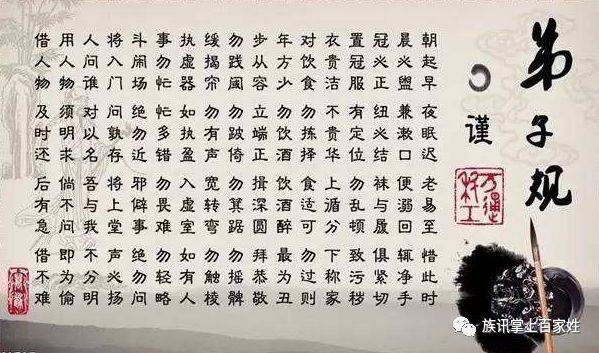 弟子规
谨
朝起早 夜眠迟 老易至 惜此时
晨必盥 兼漱口 便溺回 辄净手
冠必正 纽必结 袜与履 俱紧切
置冠服 有定位 勿乱顿 致污秽
衣贵洁 不贵华 上循分 下称家
对饮食 勿拣择 食适可 勿过则
年方少 勿饮酒 饮酒醉 最为丑
步从容 立端正 揖深圆 拜恭敬
勿践阈 勿跛倚 勿箕踞 勿摇髀
缓揭帘 勿有声 宽转弯 勿触棱
执虚器 如执盈 入虚室 如有人
事勿忙 忙多错 勿畏难 勿轻略
斗闹场 绝勿近 邪僻事 绝勿问
将入门 问孰存 将上堂 声必扬
人问谁 对以名 吾与我 不分明
用人物 须明求 倘不问 即为偷
借人物 及时还 后有急 借不难
族讯掌上百家姓